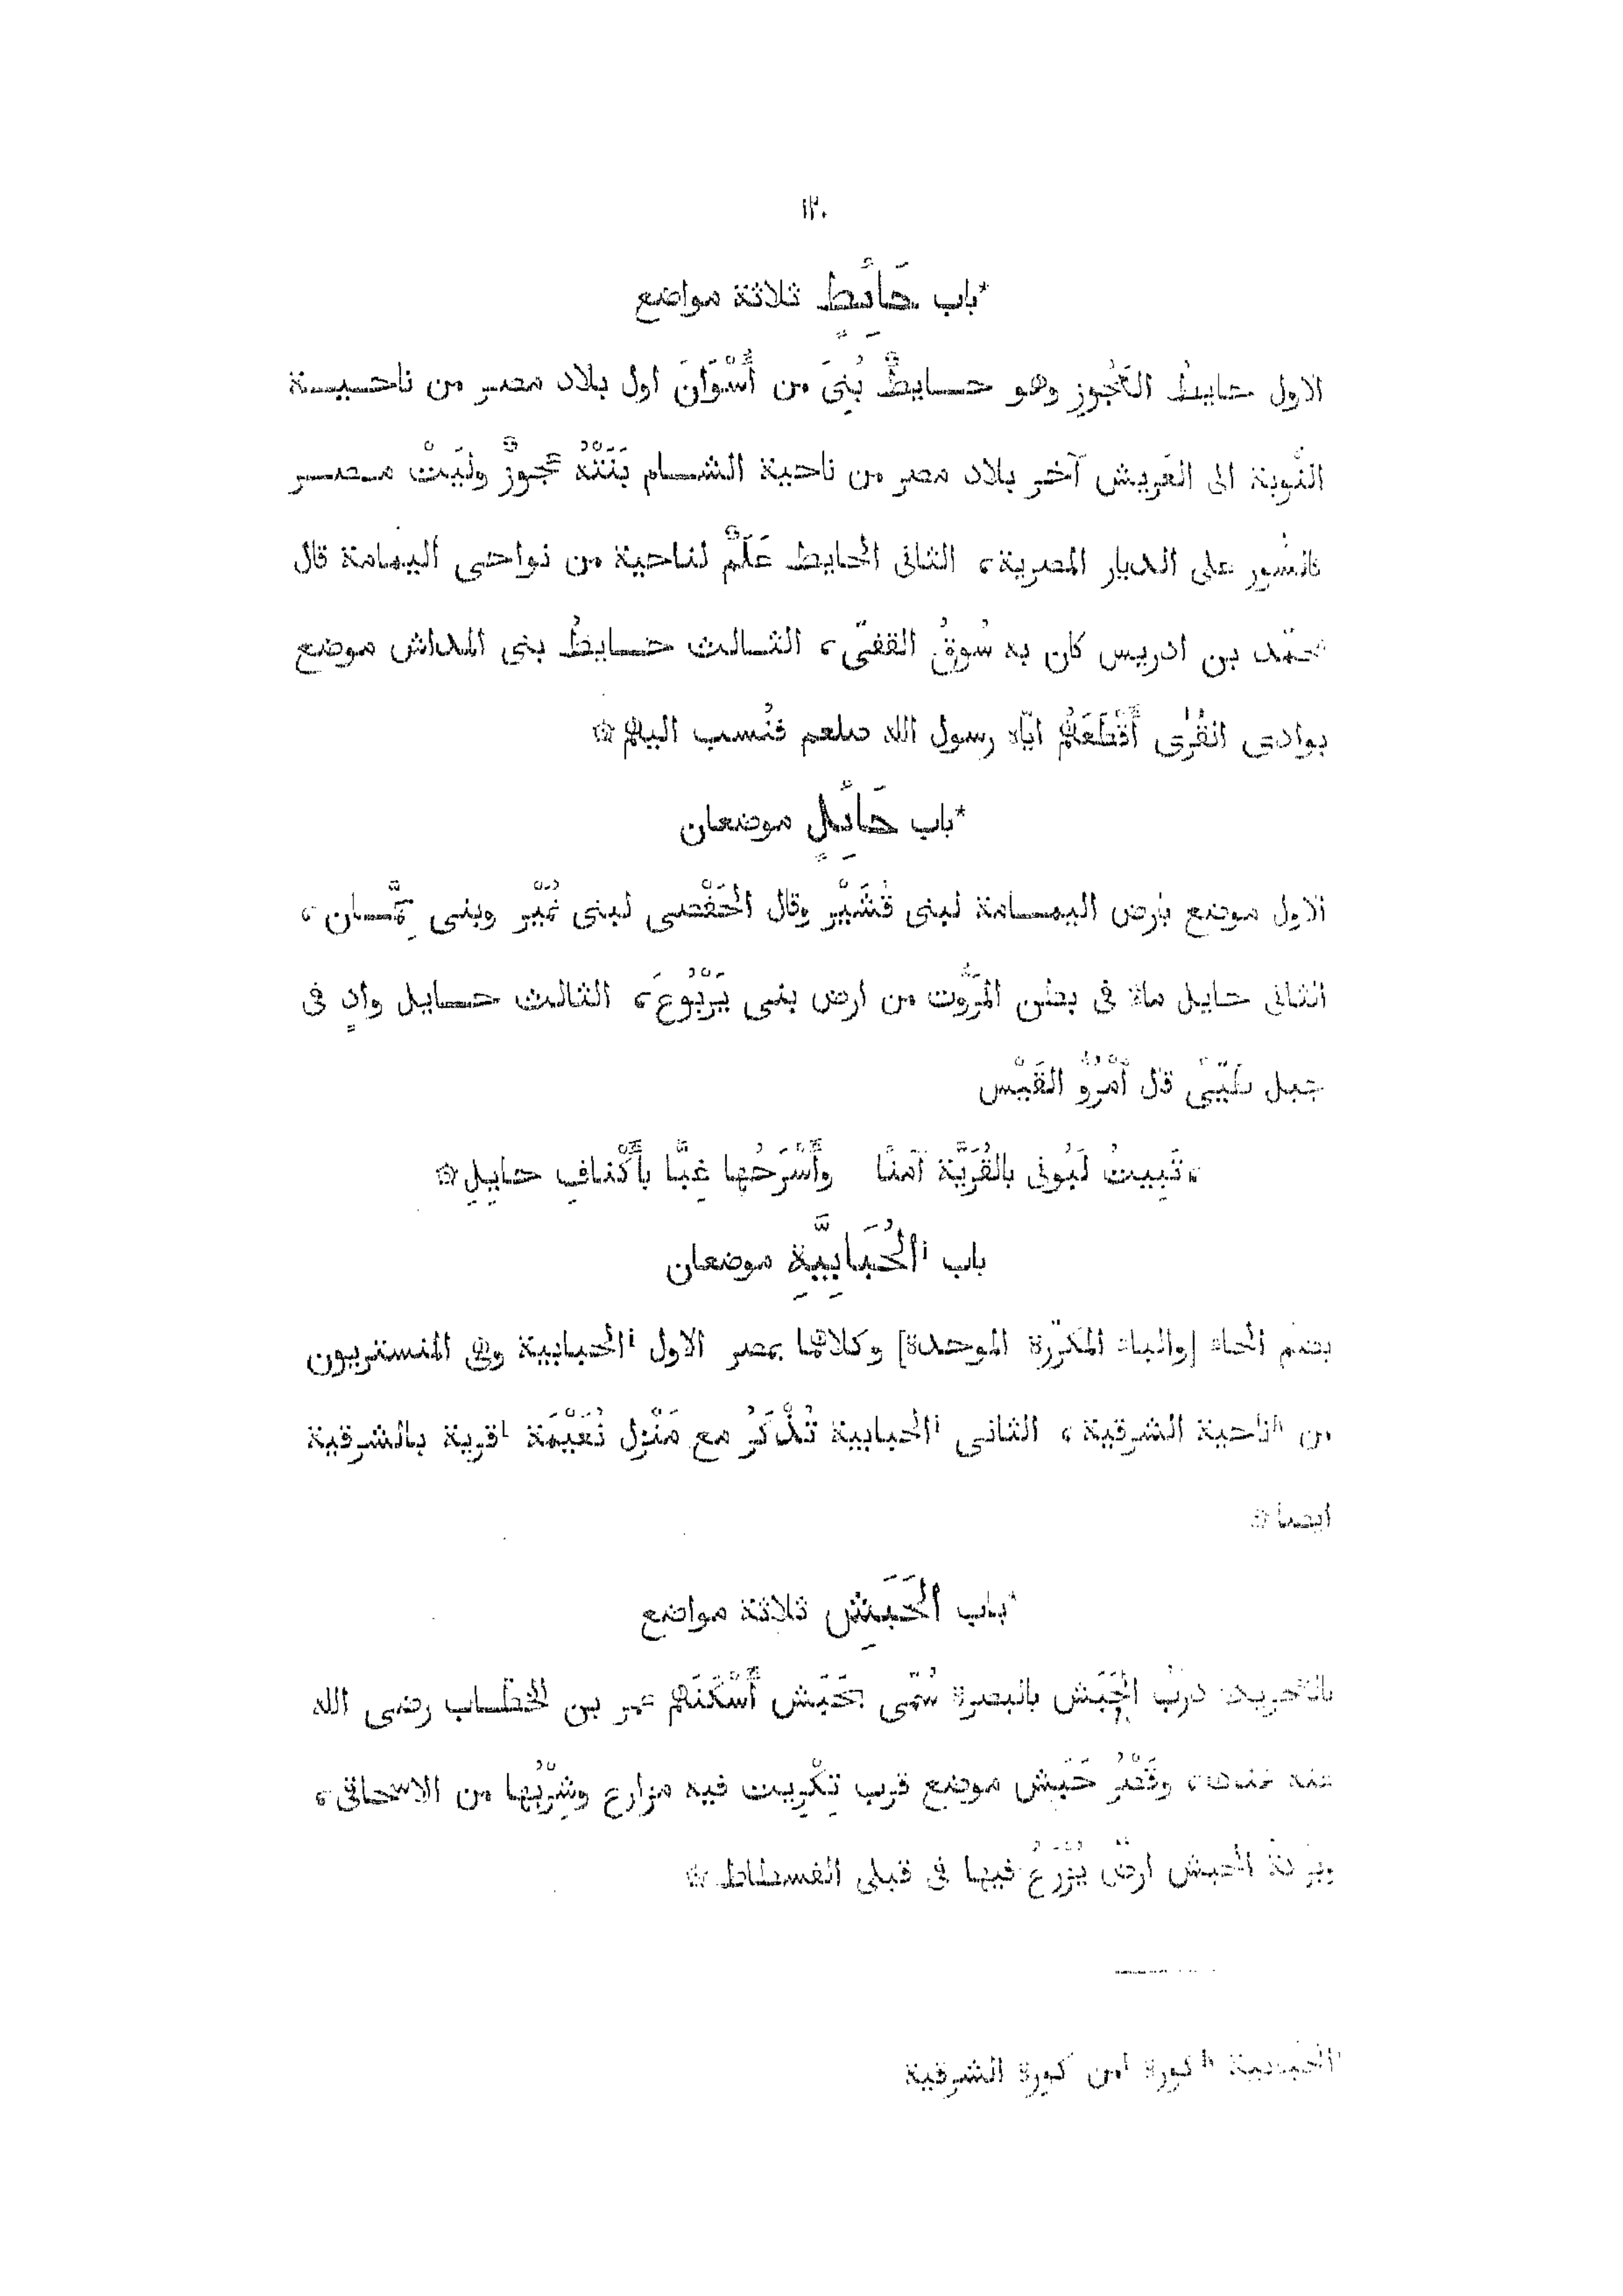 ١٢٠
*باب حَائِطٍ ثلاثة مواضع
الاول حايطُ العَجُوزِ وهو حـايطٌ بُنِىَ من أَسْوَانَ اول بلاد مصر من ناحيـة
النُّوبة الى العَرِيش آخر بلاد مصر من ناحية الشـام بَنَتْهُ عَجُوزٌ وَلِيَتْ مـصـر
كالسُّور على الديار المصرية، الثانى الحايط عَلَمٌ لناحية من نواحى اليمامة قال
محمّد بن ادريس كان به سُوقُ الفقىّ، الثـالث حـايطُ بنى المداش موضع
بوادى القُرَى أَقْطَعَهُم ايّاه رسول الله صلعم فنُسب اليهم ۞
*باب حَائِلٍ موضعان
الاول موضع بارض اليمـامة لبنى قُشَيْر وقال الحَفْصى لبنى نُمَيْر وبنى حِمَّـان،
الثانى حايل ماء فى بطن المَرُّوت من ارض بنى يَرْبُوعَ، الثالث حـايل وادٍ فى
جبل طَيّىء قال أمْرُؤُ القَيْس
،تَبِيتُ لَبُونِى بالقُرَيَّة آمنًا وأَسْرَحُها غِبًّا بأَكْنافِ حايِلِ ۞
باب ¹الحُبَابِيَّةِ موضعان
بضم الحاء [والباء المكرّرة الموحدة] وكلاهما بمصر الاول ¹الحبابية وهى المنستريون
من ʰناحية الشرقية، الثانى ¹الحبابية تُذْكَرُ مع مَنْزِل نُعَيْمَة ¹قرية بالشرقية
ايضا ۞
*باب الحَبَشِ ثلاثة مواضع
بالتحريك دَرْبُ الحَبَش بالبصرة سُمّى بحَبَش أَسْكَنَهم عمر بن الخطـاب رضى الله
عنه هناك، وقَصْرُ حَبَش موضع قرب تِكْرِيت فيه مزارع وشِرْبُها من الاسحاقى،
وبركة الحبش ارضٌ يُزْرَعُ فيها فى قبلى الفسطاط ۞
ʰكورة ¹من كورة الشرقية